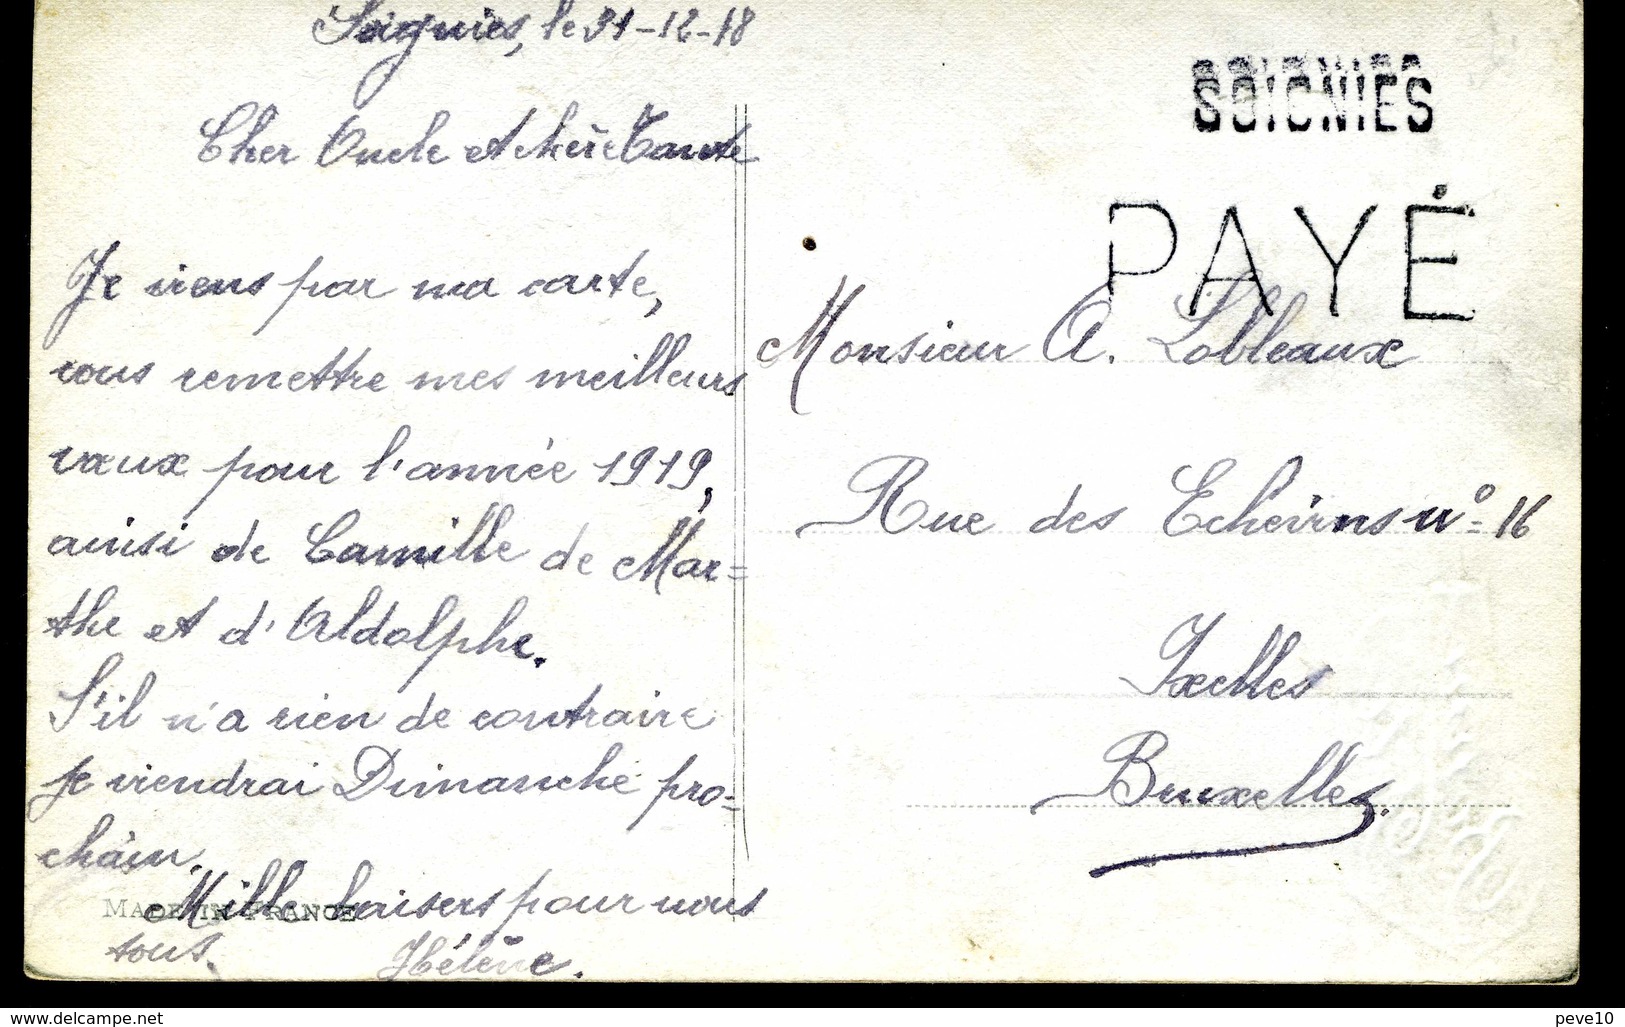 Soignies, le 31-12-18
Cher Oncle et chère Tante
Je viens par ma carte,
vous remettre mes meilleurs
vœux pour l'année 1919,
ainsi de Camille de Mar=
the et d'Aldolphe.
S'il n'a rien de contraire
je viendrai Dimanche pro=
chain.
Mille baisers pour vous
tous.
Hélène.
MADE IN FRANCE
SOIGNIES
PAYÉ
Monsieur A. Lobleaux
Rue des Echevins n° 16
Ixelles
Bruxelles.
www.delcampe.net
peve10